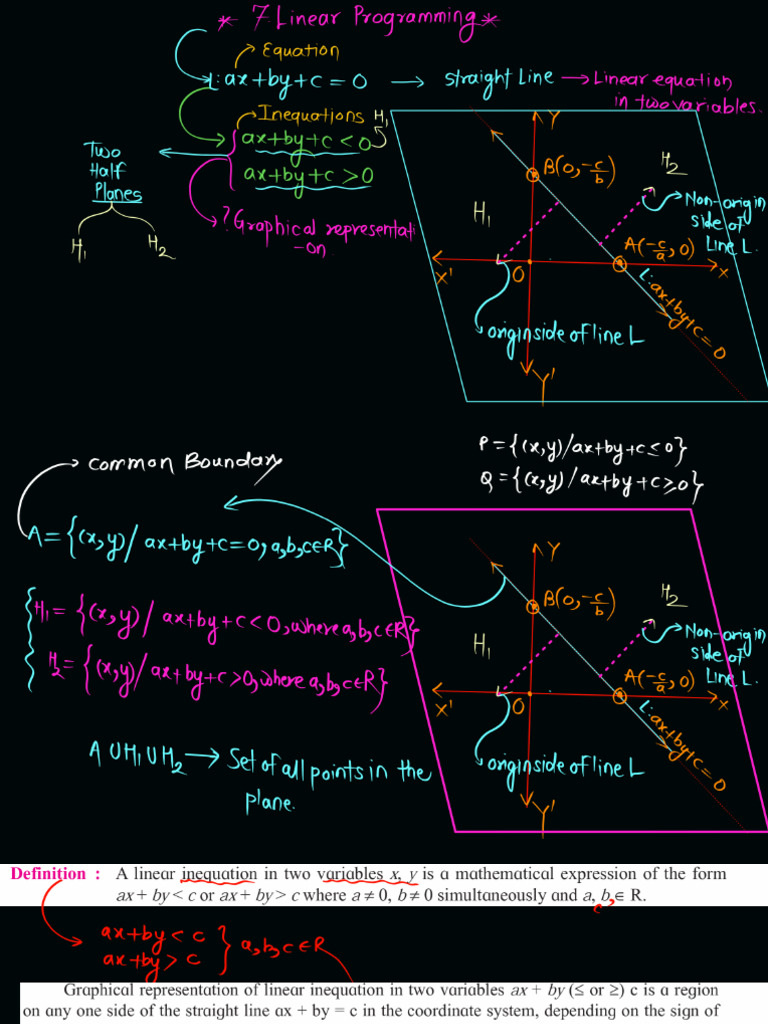 * 7. Linear Programming *
Equation
L: ax+by+c = 0 → straight Line → Linear equation
in two variables.
Inequations
ax+by+c < 0 H₁
ax+by+c > 0
Two
Half
Planes
H₁ H₂
? Graphical representati
-on
Y
B(0, -c/b)
H₂
Non-origin
side of
Line L.
H₁
A(-c/a, 0)
X' O X
L: ax+by+c = 0
origin side of line L
Y'
P = {(x,y)/ax+by+c ≤ 0}
Q = {(x,y)/ax+by+c ≥ 0}
common Boundary
A = {(x,y)/ ax+by+c=0, a,b,c∈R}
H₁ = {(x,y)/ ax+by+c<0, where a,b,c∈R}
H₂ = {(x,y)/ax+by+c>0, where a,b,c∈R}
Y
B(0, -c/b)
H₂
Non-origin
side of
Line L.
H₁
A(-c/a, 0)
X' O X
L: ax+by+c = 0
origin side of line L
Y'
A ∪ H₁ ∪ H₂ → Set of all points in the
plane.
Definition : A linear inequation in two variables x, y is a mathematical expression of the form
ax + by < c or ax + by > c where a ≠ 0, b ≠ 0 simultaneously and a, b ∈ R.
c
ax+by < c
ax+by > c } a,b,c∈R
Graphical representation of linear inequation in two variables ax + by (≤ or ≥) c is a region
on any one side of the straight line ax + by = c in the coordinate system, depending on the sign of